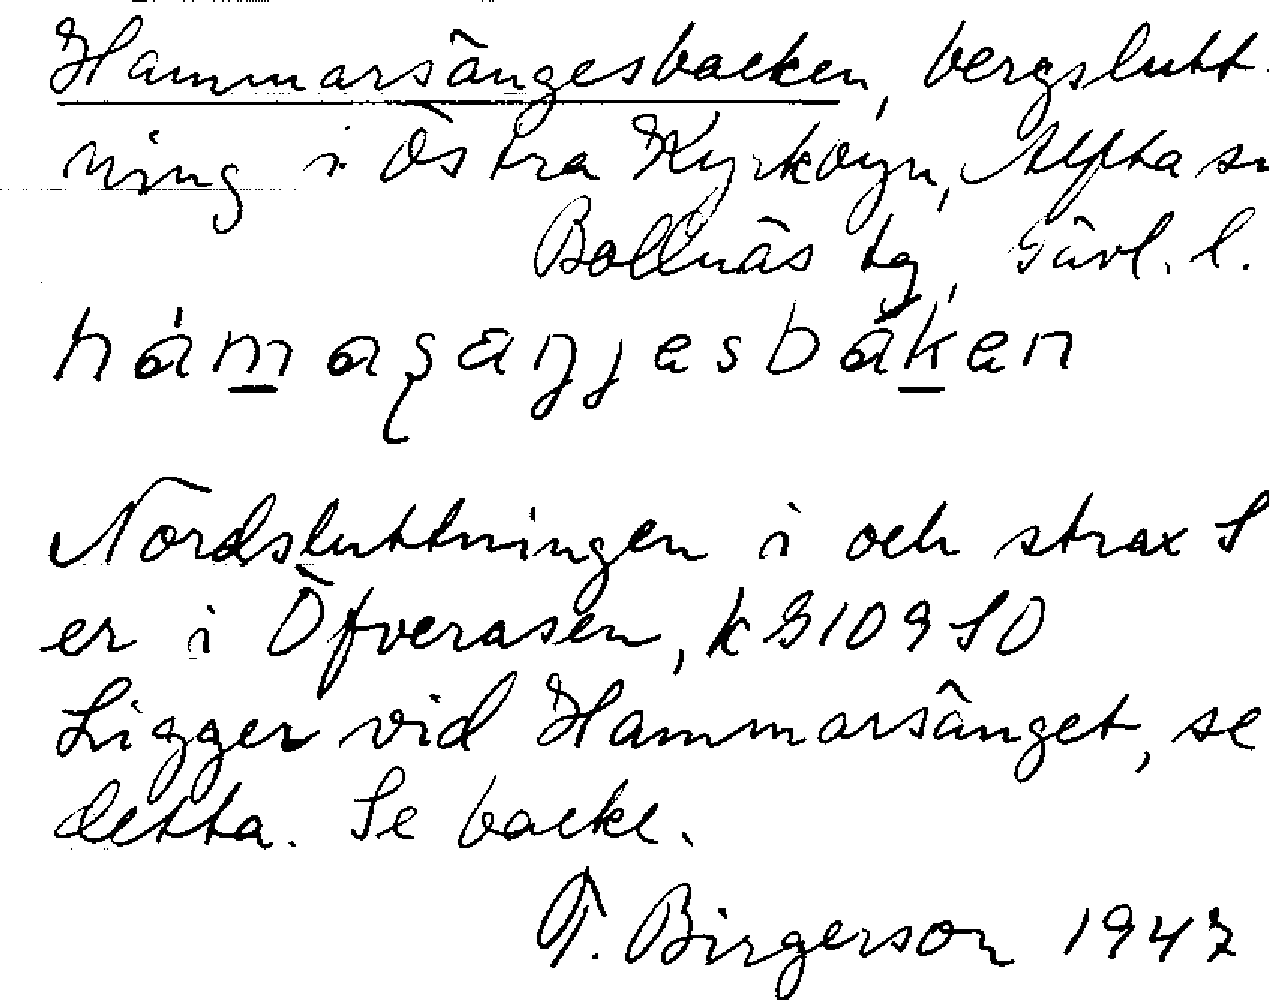 Hammarsängesbacken, bergslutt-
ning i Östra Kyrkbyn, Alfta sn
Bollnäs tg, Gävl. l.
hámaşaŋjesbáken
Nordsluttningen i och strax S
er i Öfveråsen, k 9109 SO
Ligger vid Hammarsänget, se
detta. Se backe.
T. Birgerson 1947